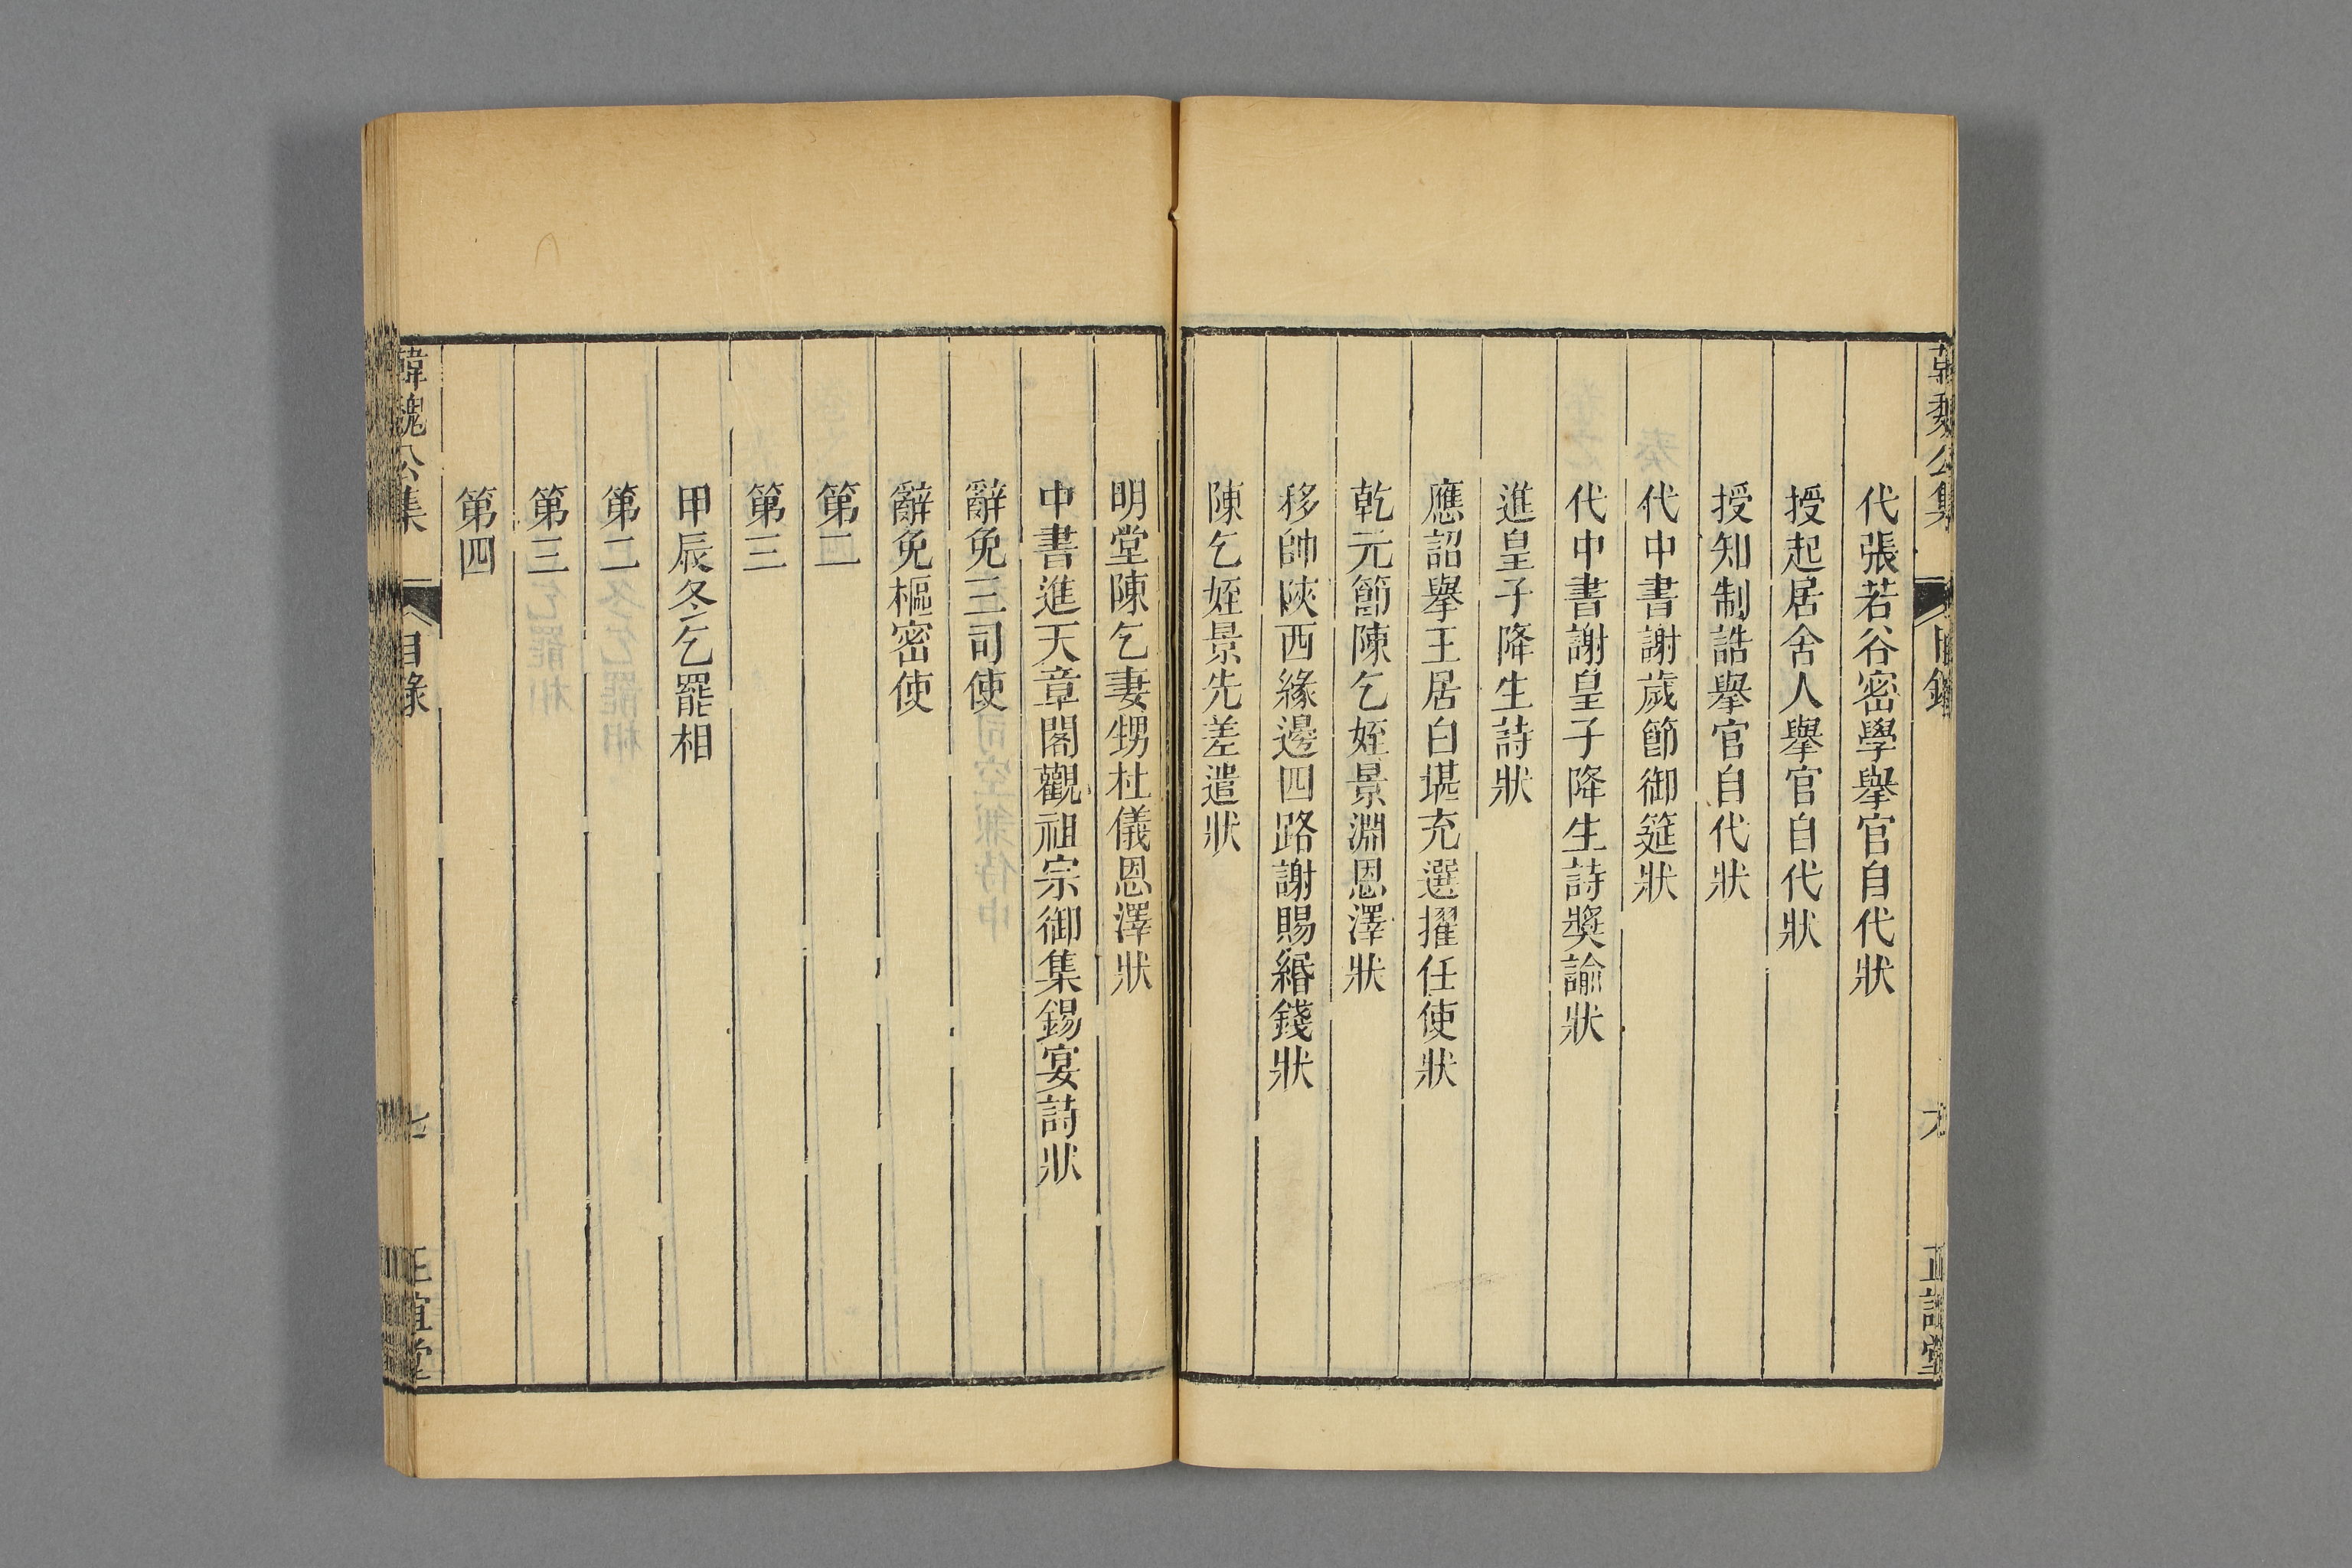 代張若谷密學舉官自代狀
授起居舍人舉官自代狀
授知制誥舉官自代狀
代中書謝歲節御筵狀
代中書謝皇子降生詩獎諭狀
進皇子降生詩狀
應詔舉王居白堪充選擢任使狀
乾元節陳乞姪景淵恩澤狀
移帥陝西緣邊四路謝賜緡錢狀
陳乞姪景先差遣狀
明堂陳乞妻甥杜儀恩澤狀
中書進天章閣觀祖宗御集錫宴詩狀
辭免三司使
辭免樞密使
第二
第三
甲辰冬乞罷相
第二
第三
第四
韓魏公集
目錄
正誼堂